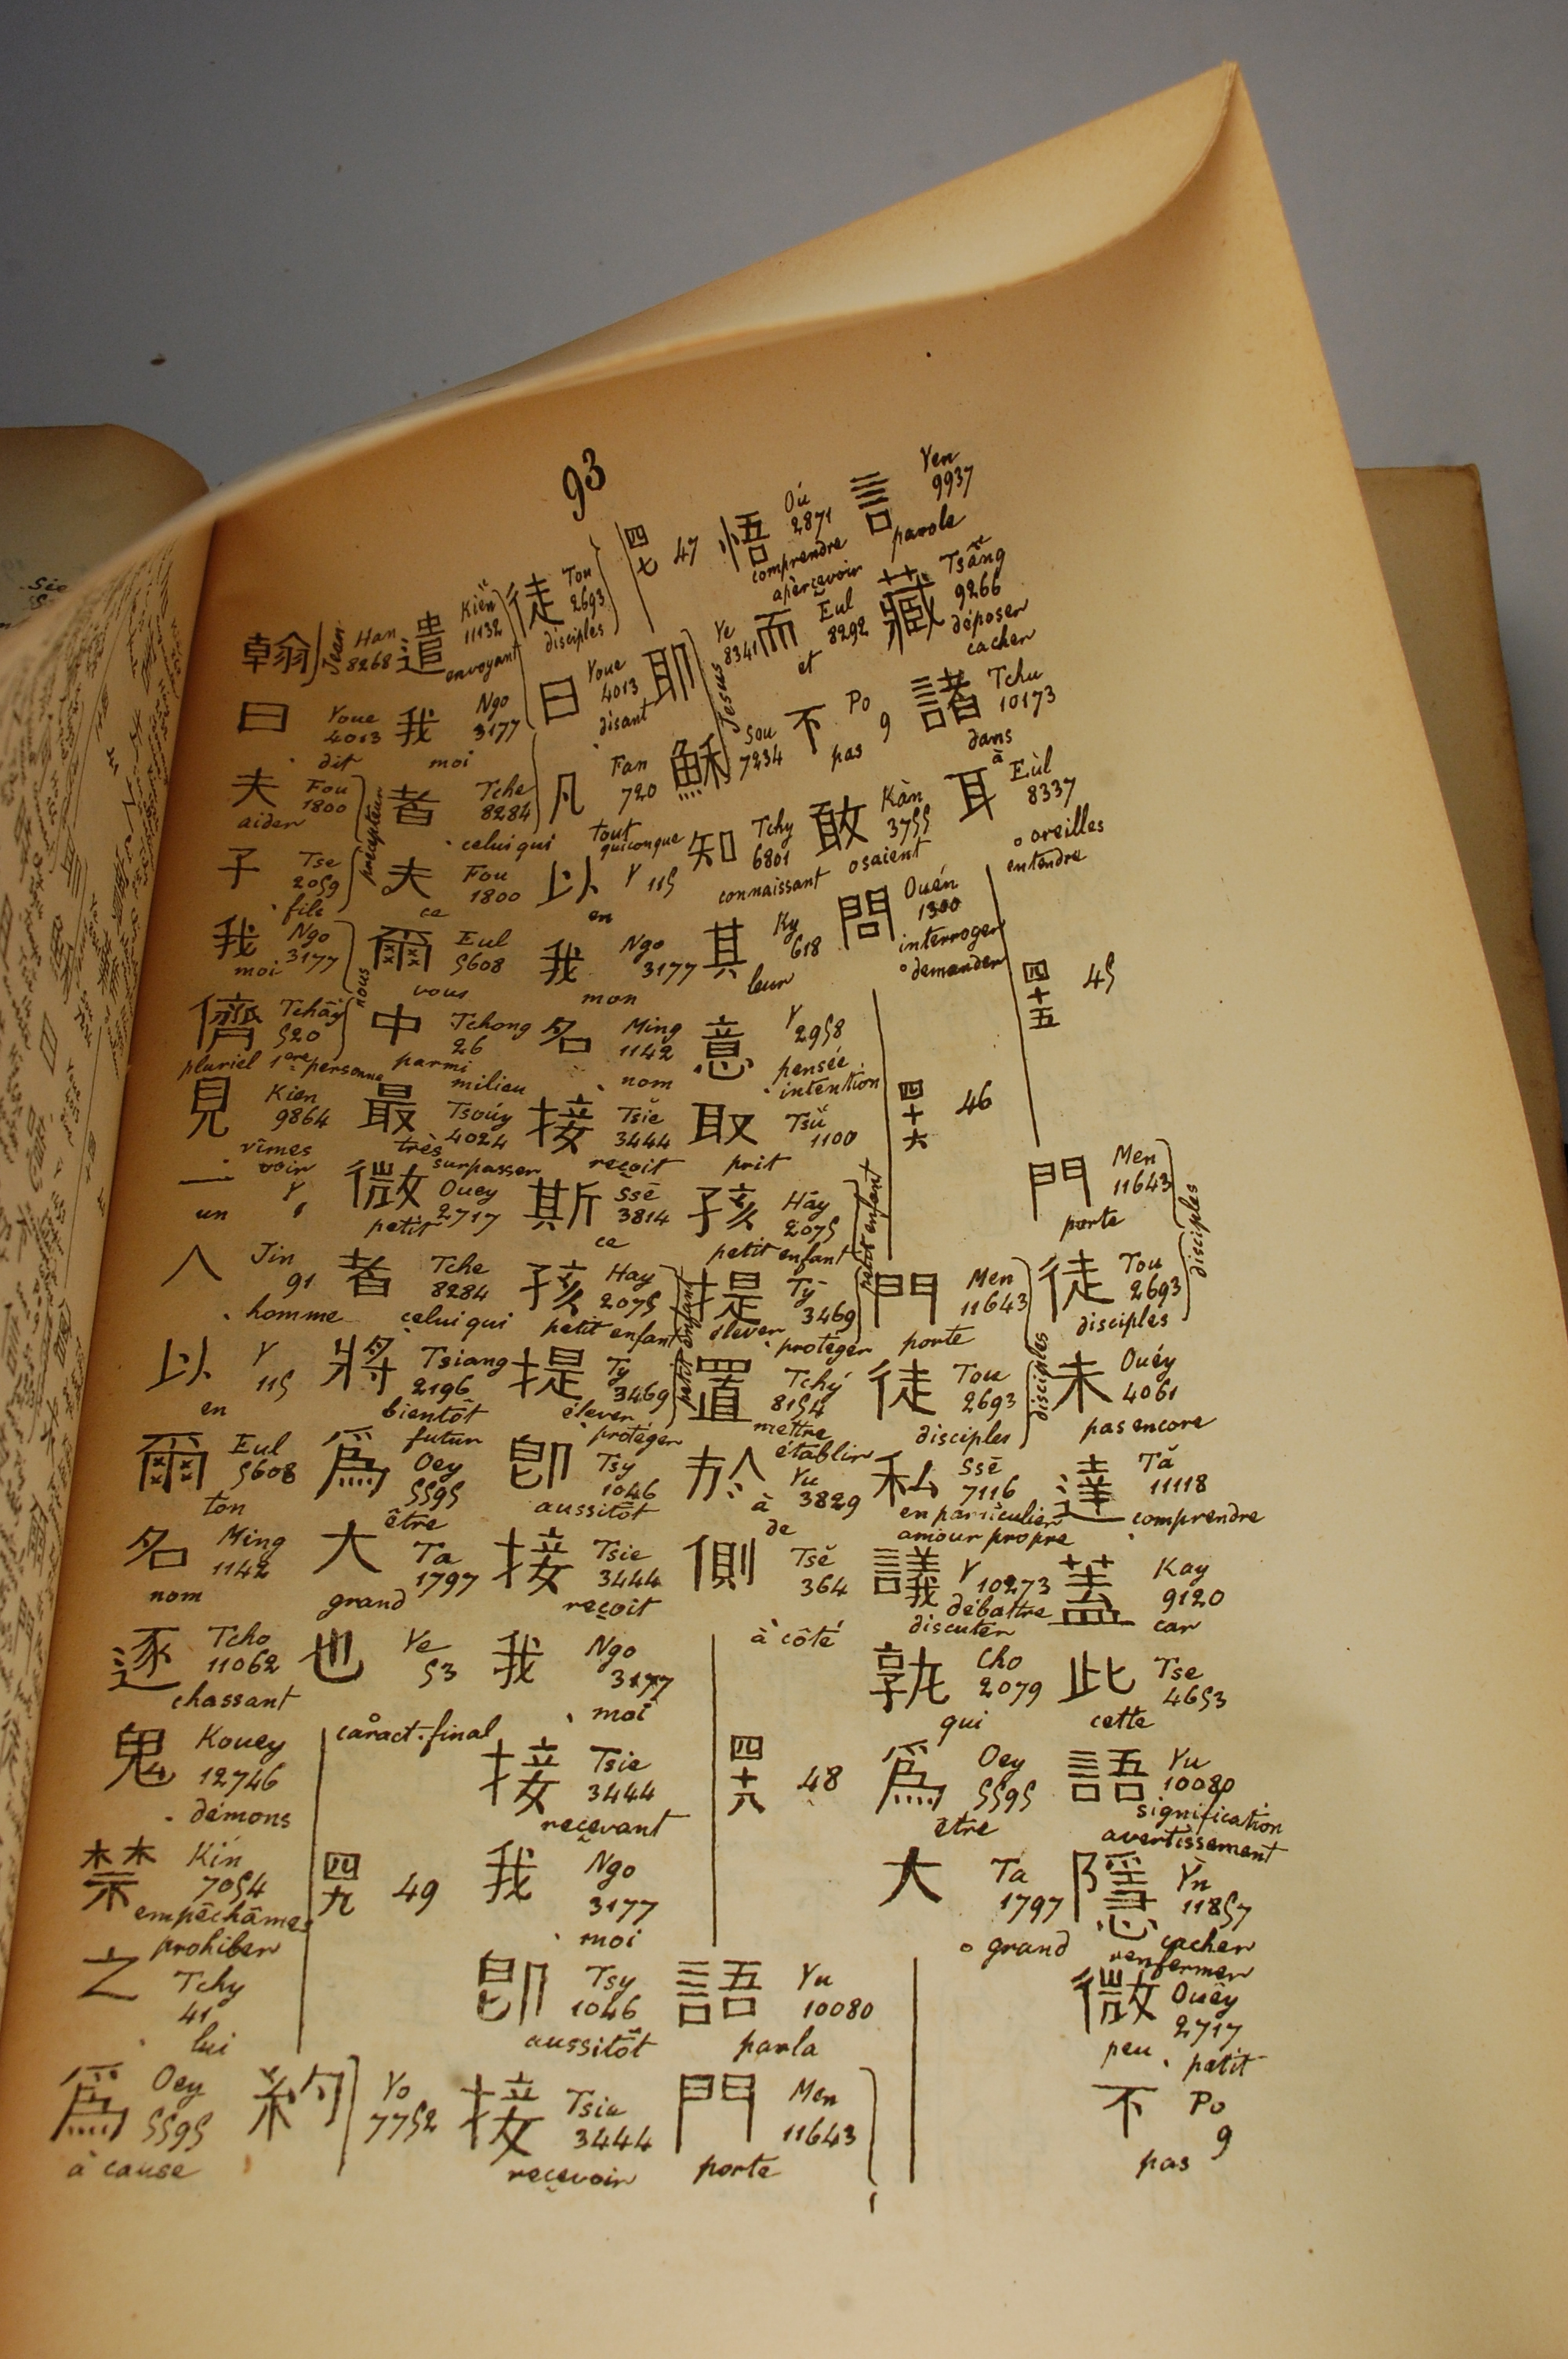 93
言 Yen 9937 parole
藏 Tsâng 9266 déposer cacher
諸 Tchu 10173 dans à
耳 Eùl 8337 oreilles entendre
四十五 45
門 Men 11643 porte
徒 Tou 2693 disciples
disciples
未 Ouéy 4061 pas encore
達 Tă 11118 comprendre
蓋 Kay 9120 car
此 Tse 4653 cette
語 Yu 10080 signification avertissement
隱 Yn 11857 cacher renfermer
微 Ouêy 2717 peu petit
不 Po 9 pas
悟 Oú 2871 comprendre apèrcevoir
而 Eul 8292 et
不 Po 9 pas
敢 Kàn 3755 osaient
問 Ouén 1300 interroger demander
四十六 46
門 Men 11643 porte
徒 Tou 2693 disciples
disciples
私 Ssē 7116 en particulier amour propre
議 Y 10273 débattre discuter
孰 Cho 2079 qui
爲 Oey 5595 etre
大 Ta 1797 grand
四七 47
耶 Ye 8341
穌 Sou 7234
Jesus
知 Tchy 6801 connaissant
其 Ky 618 leur
意 Y 2958 pensée intention
取 Tsŭ 1100 prit
孩 Hây 2075 petit enfant
提 Tȳ 3469 élever protéger
petit enfant
置 Tchý 8154 mettre établir
於 Yu 3829 à de
側 Tsĕ 364 à côté
四十八 48
語 Yu 10080 parla
門 Men 11643 porte
徒 Tou 2693 disciples
曰 Youe 4013 disant
凡 Fan 720 tout quiconque
以 Y 115 en
我 Ngo 3177 mon
名 Ming 1142 nom
接 Tsie 3444 reçoit
斯 Ssē 3814 ce
孩 Hay 2075 petit enfant
提 Ty 3469 élever protéger
petit enfant
卽 Tsy 1046 aussitôt
接 Tsie 3444 reçoit
我 Ngo 3177 moi
接 Tsie 3444 recevant
我 Ngo 3177 moi
卽 Tsy 1046 aussitôt
接 Tsie 3444 recevoir
遣 Kièn 11132 envoyant
我 Ngo 3177 moi
者 Tche 8284 celui qui
夫 Fou 1800 ce
爾 Eul 5608 vous
中 Tchong 26 parmi milieu
最 Tsoúy 4024 très surpasser
微 Ouey 2717 petit
者 Tche 8284 celui qui
將 Tsiang 2196 bientôt futur
爲 Oey 5595 être
大 Ta 1797 grand
也 Ye 53 caract. final
四九 49
約 Yo 7752
翰 Han 8268
Jean
曰 Youe 4013 dit
夫 Fou 1800 aider
子 Tse 2059 fils
précepteur
我 Ngo 3177 moi
儕 Tchây 520 pluriel 1ere personne
nous
見 Kien 9864 vîmes voir
一 Y 1 un
人 Jin 91 homme
以 Y 115 en
爾 Eul 5608 ton
名 Ming 1142 nom
逐 Tcho 11062 chassant
鬼 Kouey 12746 démons
禁 Kín 7054 empêchâmes prohiber
之 Tchy 41 lui
爲 Oey 5595 à cause